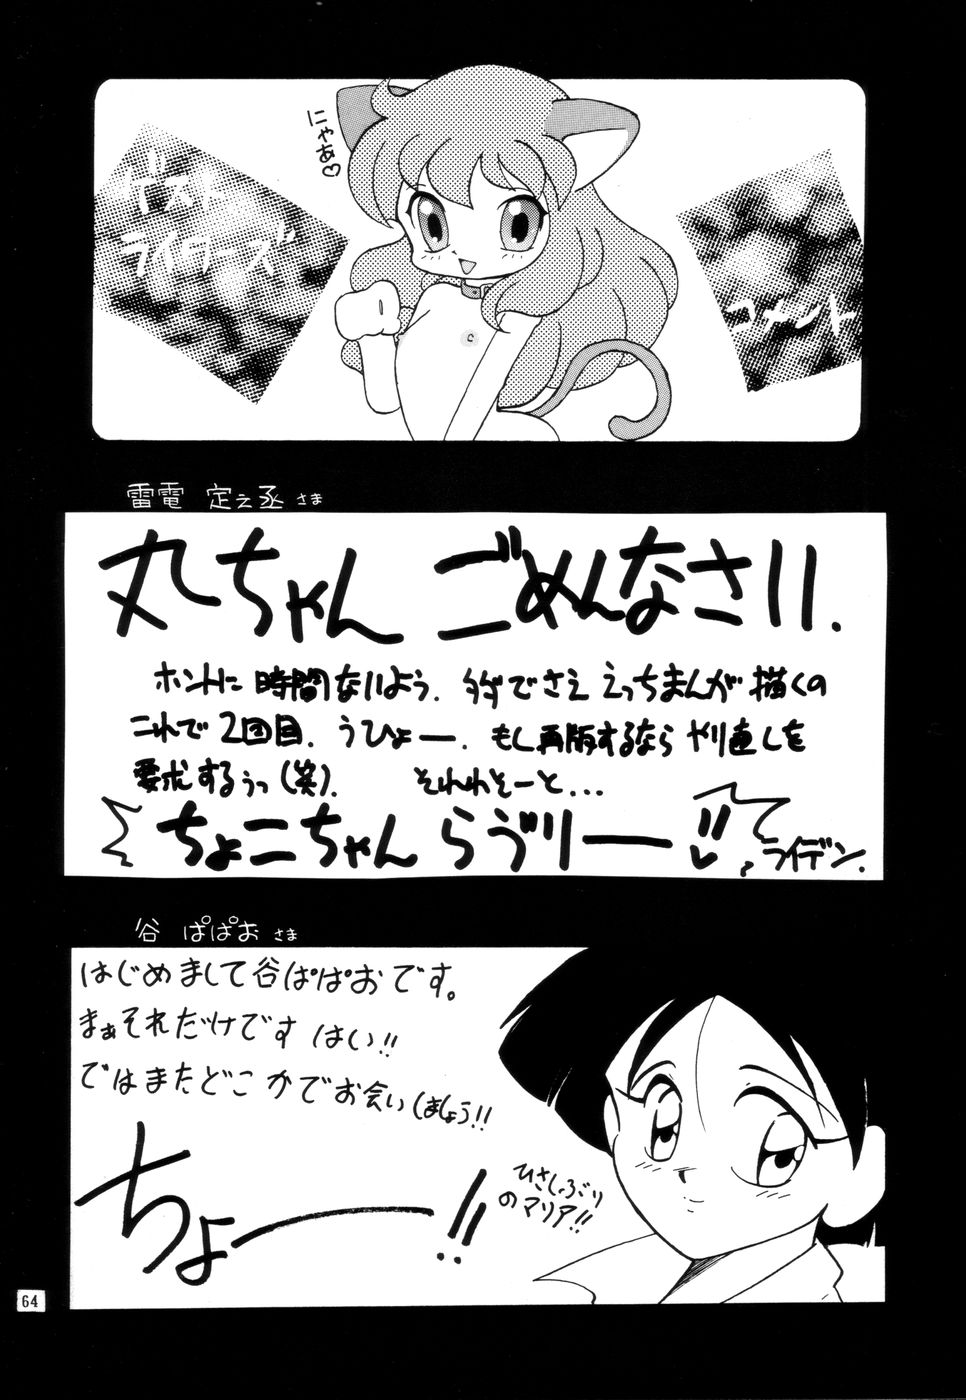 にゃあ♡
ゲスト
ライターズ
コメント
雷電 定之丞 さま
丸ちゃん ごめんなさい.
ホントに 時間ないよう. でさえ えっちまんが 描くの
これで 2回目. うひょー. もし再版するなら やり直しを
要求するぅっ(笑). それわそーと...
ちょこちゃん らヴリー!!
ライデン.
谷 ぱぱお さま
はじめまして谷ぱぱおです。
まぁそれだけです はい!!
ではまたどこかでお会いしましょう!!
ちょー!!
ひさしぶり
のマリア!!
64